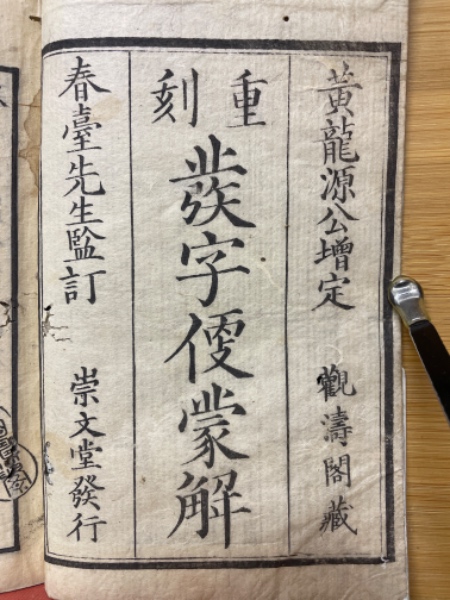 黃龍源公增定 觀濤閣藏
重刻
發字便蒙解
春臺先生監訂 崇文堂發行